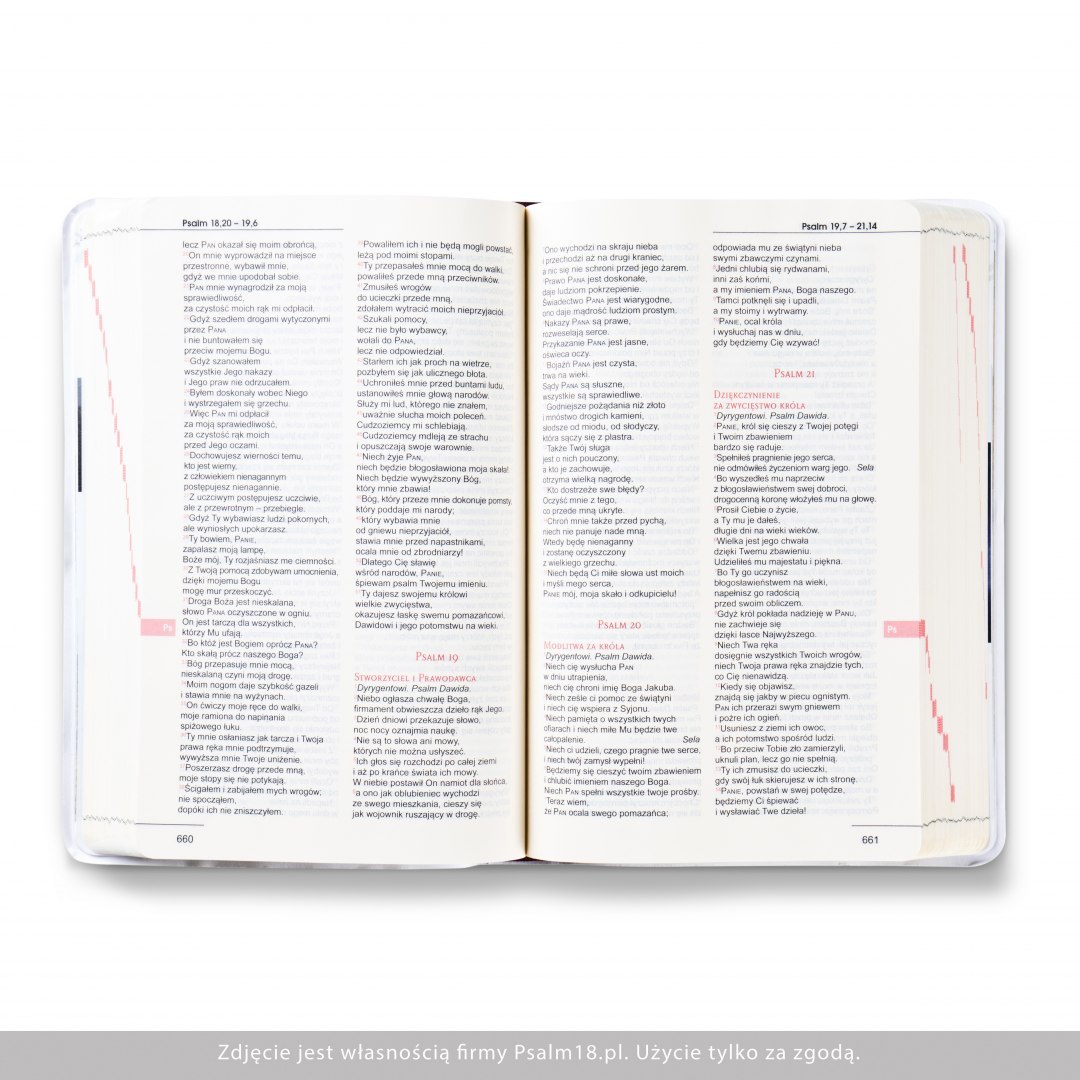 Psalm 18,20 – 19,6
lecz PAN okazał się moim obrońcą,
On mnie wyprowadził na miejsce
przestronne, wybawił mnie,
gdyż we mnie upodobał sobie.
PAN mnie wynagrodził za moją
sprawiedliwość,
za czystość moich rąk mi odpłacił.
Gdyż szedłem drogami wytyczonymi
przez PANA
i nie buntowałem się
przeciw mojemu Bogu.
Gdyż szanowałem
wszystkie Jego nakazy
i Jego praw nie odrzucałem.
Byłem doskonały wobec Niego
i wystrzegałem się grzechu.
Więc PAN mi odpłacił
za moją sprawiedliwość,
za czystość rąk moich
przed Jego oczami.
Dochowujesz wierności temu,
kto jest wierny,
z człowiekiem nienagannym
postępujesz nienagannie.
Z uczciwym postępujesz uczciwie,
ale z przewrotnym – przebiegle.
Gdyż Ty wybawiasz ludzi pokornych,
ale wyniosłych upokarzasz.
Ty bowiem, PANIE,
zapalasz moją lampę,
Boże mój, Ty rozjaśniasz me ciemności.
Z Twoją pomocą zdobywam umocnienia,
dzięki mojemu Bogu
mogę mur przeskoczyć.
Droga Boża jest nieskalana,
słowo PANA oczyszczone w ogniu.
On jest tarczą dla wszystkich,
którzy Mu ufają.
Bo któż jest Bogiem oprócz PANA?
Kto skałą prócz naszego Boga?
Bóg przepasuje mnie mocą,
nieskalaną czyni moją drogę.
Moim nogom daje szybkość gazeli
i stawia mnie na wyżynach.
On ćwiczy moje ręce do walki,
moje ramiona do napinania
spiżowego łuku.
Ty mnie osłaniasz jak tarcza i Twoja
prawa ręka mnie podtrzymuje,
wywyższa mnie Twoje uniżenie.
Poszerzasz drogę przede mną,
moje stopy się nie potykają.
Ścigałem i zabijałem mych wrogów;
nie spocząłem,
dopóki ich nie zniszczyłem.
Powaliłem ich i nie będą mogli powstać,
leżą pod moimi stopami.
Ty przepasałeś mnie mocą do walki,
powaliłeś przede mną przeciwników.
Zmusiłeś wrogów
do ucieczki przede mną,
zdołałem wytracić moich nieprzyjaciół.
Szukali pomocy,
lecz nie było wybawcy,
wołali do PANA,
lecz nie odpowiedział.
Starłem ich jak proch na wietrze,
pozbyłem się jak ulicznego błota.
Uchroniłeś mnie przed buntami ludu,
ustanowiłeś mnie głową narodów.
Służy mi lud, którego nie znałem,
uważnie słucha moich poleceń.
Cudzoziemcy mi schlebiają.
Cudzoziemcy mdleją ze strachu
i opuszczają swoje warownie.
Niech żyje PAN,
niech będzie błogosławiona moja skała!
Niech będzie wywyższony Bóg,
który mnie zbawia!
Bóg, który przeze mnie dokonuje pomsty,
który poddaje mi narody;
który wybawia mnie
od gniewu nieprzyjaciół,
stawia mnie przed napastnikami,
ocala mnie od zbrodniarzy!
Dlatego Cię sławię
wśród narodów, PANIE,
śpiewam psalm Twojemu imieniu.
Ty dajesz swojemu królowi
wielkie zwycięstwa,
okazujesz łaskę swemu pomazańcowi,
Dawidowi i jego potomstwu na wieki.
PSALM 19
STWORZYCIEL I PRAWODAWCA
Dyrygentowi. Psalm Dawida.
Niebo ogłasza chwałę Boga,
firmament obwieszcza dzieło rąk Jego.
Dzień dniowi przekazuje słowo,
noc nocy oznajmia naukę.
Nie są to słowa ani mowy,
których nie można usłyszeć.
Ich głos się rozchodzi po całej ziemi
i aż po krańce świata ich mowy.
W niebie postawił On namiot dla słońca,
a ono jak oblubieniec wychodzi
ze swego mieszkania, cieszy się
jak wojownik ruszający w drogę.
Ps
660
Psalm 19,7 – 21,14
Ono wychodzi na skraju nieba
i przechodzi aż na drugi kraniec,
a nic się nie schroni przed jego żarem.
Prawo PANA jest doskonałe,
daje ludziom pokrzepienie.
Świadectwo PANA jest wiarygodne,
ono daje mądrość ludziom prostym.
Nakazy PANA są prawe,
rozweselają serce.
Przykazanie PANA jest jasne,
oświeca oczy.
Bojaźń PANA jest czysta,
trwa na wieki.
Sądy PANA są słuszne,
wszystkie są sprawiedliwe.
Godniejsze pożądania niż złoto
i mnóstwo drogich kamieni,
słodsze od miodu, od słodyczy,
która sączy się z plastra.
Także Twój sługa
jest o nich pouczony,
a kto je zachowuje,
otrzyma wielką nagrodę.
Kto dostrzeże swe błędy?
Oczyść mnie z tego,
co przede mną ukryte.
Chroń mnie także przed pychą,
niech nie panuje nade mną.
Wtedy będę nienaganny
i zostanę oczyszczony
z wielkiego grzechu.
Niech będą Ci miłe słowa ust moich
i myśli mego serca,
PANIE mój, moja skało i odkupicielu!
PSALM 20
MODLITWA ZA KRÓLA
Dyrygentowi. Psalm Dawida.
Niech cię wysłucha PAN
w dniu utrapienia,
niech cię chroni imię Boga Jakuba.
Niech ześle ci pomoc ze świątyni
i niech cię wspiera z Syjonu.
Niech pamięta o wszystkich twych
ofiarach i niech miłe Mu będzie twe
całopalenie. Sela
Niech ci udzieli, czego pragnie twe serce,
i niech twój zamysł wypełni!
Będziemy się cieszyć twoim zbawieniem
i chlubić imieniem naszego Boga.
Niech PAN spełni wszystkie twoje prośby.
Teraz wiem,
że PAN ocala swego pomazańca;
odpowiada mu ze świątyni nieba
swymi zbawczymi czynami.
Jedni chlubią się rydwanami,
inni zaś końmi,
a my imieniem PANA, Boga naszego.
Tamci potknęli się i upadli,
a my stoimy i wytrwamy.
PANIE, ocal króla
i wysłuchaj nas w dniu,
gdy będziemy Cię wzywać!
PSALM 21
DZIĘKCZYNIENIE
ZA ZWYCIĘSTWO KRÓLA
Dyrygentowi. Psalm Dawida.
PANIE, król się cieszy z Twojej potęgi
i Twoim zbawieniem
bardzo się raduje.
Spełniłeś pragnienie jego serca,
nie odmówiłeś życzeniom warg jego. Sela
Bo wyszedłeś mu naprzeciw
z błogosławieństwem swej dobroci,
drogocenną koronę włożyłeś mu na głowę.
Prosił Ciebie o życie,
a Ty mu je dałeś,
długie dni na wieki wieków.
Wielka jest jego chwała
dzięki Twemu zbawieniu.
Udzieliłeś mu majestatu i piękna.
Bo Ty go uczynisz
błogosławieństwem na wieki,
napełnisz go radością
przed swoim obliczem.
Gdyż król pokłada nadzieję w PANU,
nie zachwieje się
dzięki łasce Najwyższego.
Niech Twa ręka
dosięgnie wszystkich Twoich wrogów,
niech Twoja prawa ręka znajdzie tych,
co Cię nienawidzą.
Kiedy się objawisz,
znajdą się jakby w piecu ognistym.
PAN ich przerazi swym gniewem
i pożre ich ogień.
Usuniesz z ziemi ich owoc,
a ich potomstwo spośród ludzi.
Bo przeciw Tobie zło zamierzyli,
uknuli plan, lecz go nie spełnią.
Ty ich zmusisz do ucieczki,
gdy swój łuk skierujesz w ich stronę.
PANIE, powstań w swej potędze,
będziemy Ci śpiewać
i wysławiać Twe dzieła!
Ps
661
Zdjęcie jest własnością firmy Psalm18.pl. Użycie tylko za zgodą.